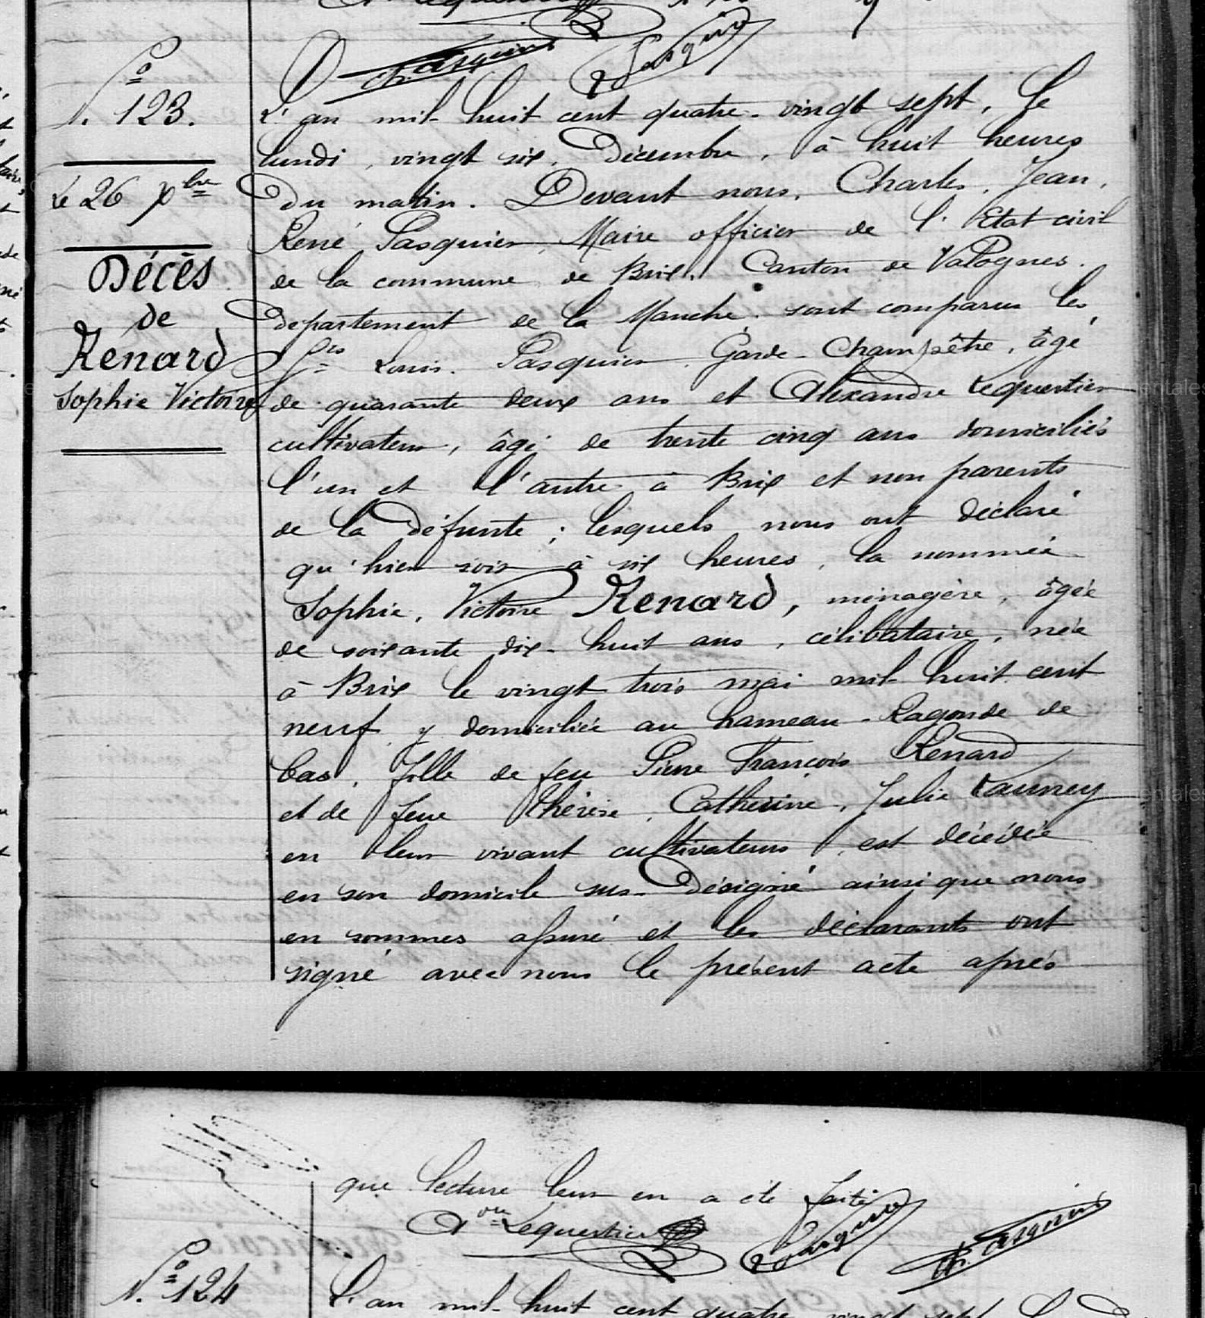 N° 123.
Le 26 Xbre
Décès
de
Renard
Sophie Victoire
L'an mil huit cent quatre-vingt sept, Le
lundi, vingt six, Décembre, à huit heures
du matin. Devant nous, Charles, Jean,
René, Pasquier, Maire officier de l'Etat civil
de la commune de Brix, Canton de Valognes.
département de la Manche. sont comparus les
Srs Louis. Pasquier. Garde-Champêtre, âgé
de quarante deux ans et Alexandre Lequertier
cultivateur, âgé de trente cinq ans domiciliés
l'un et l'autre à Brix et non parents
de la défunte; lesquels nous ont déclaré
qu'hier soir à six heures, la nommée
Sophie, Victoire Renard, ménagère, âgée
de soixante dix-huit ans, célibataire, née
à Brix le vingt trois mai mil huit cent
neuf y domiciliée au hameau-Ragonde de
bas, fille de feu Pierre François Renard
et de feue Thérèse, Catherine, Julie Launey
en leur vivant cultivateurs, est décédée
en son domicile sus-désigné ainsi que nous
en sommes assuré et les déclarants ont
signé avec nous le présent acte après
que lecture leur en a été faite
Axdre Lequertier L Pasquier Ch. Pasquier
N° 124
L'an mil huit cent quatre vingt sept